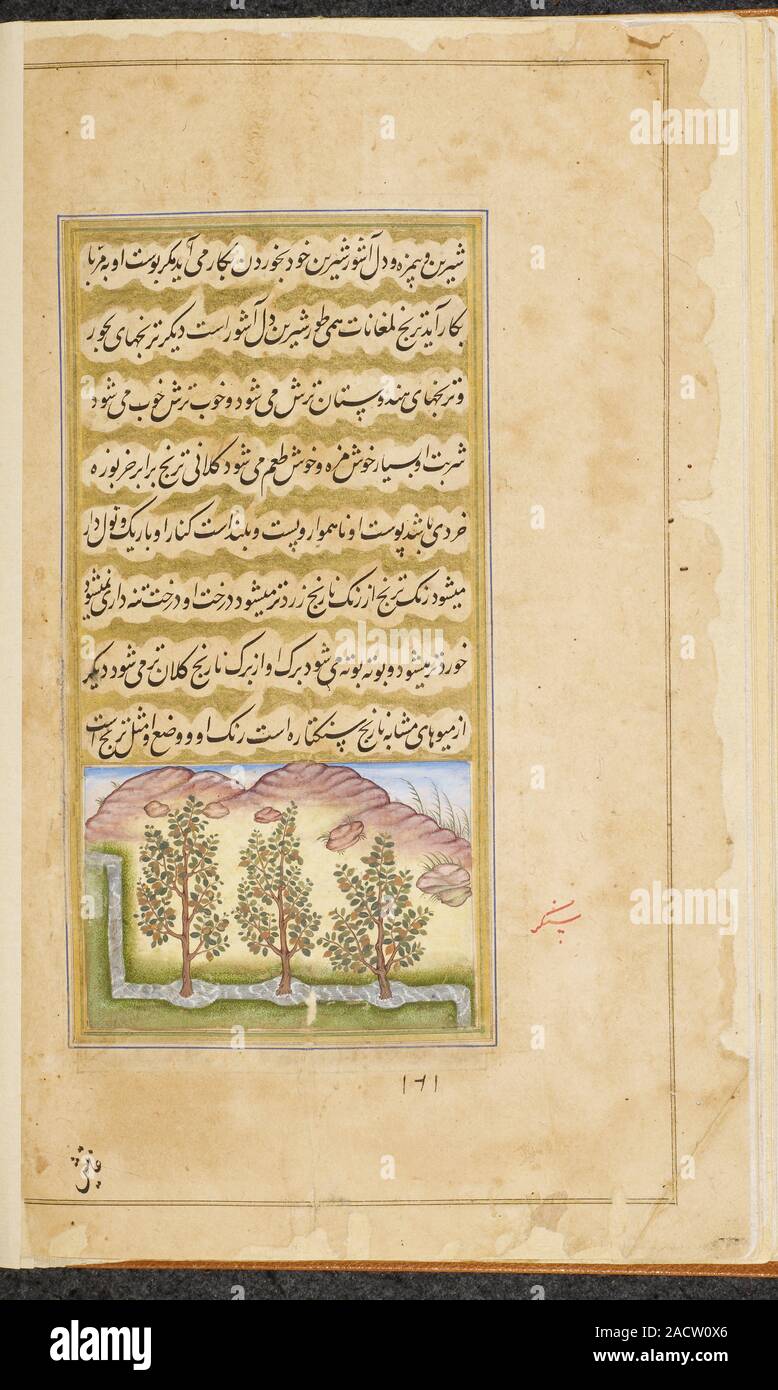 شیرین و بیمزه و دل آشور شیرین خود بخوردن بکار می آید مکر پوست او به مربا
بکار آید ترنج لمغانات همی طور شیرین دل آشور است دیکر ترنجهای بجور
و ترنجهای هندوستان ترش می شود و خوب ترش خوب می شود
شربت او بسیار خوش مزه و خوش طعم می شود کلانی ترنج برابر خربوزه
خردی باشد پوست او ناهموار و پست و بلند است کنار او باریک و تول دار
میشود رنک ترنج از رنک نارنج زردتر میشود درخت او درخت تنه داری نمیشود
خوردتر میشود و بوته بوته می شود برک او از برک نارنج کلان تر می شود دیکر
از میوهای مشابه نارنج سنکتاره است رنک او و وضع او مثل ترنج است
alamy
alamy
a
a
alamy
Image ID: 2ACW0X6
www.alamy.com